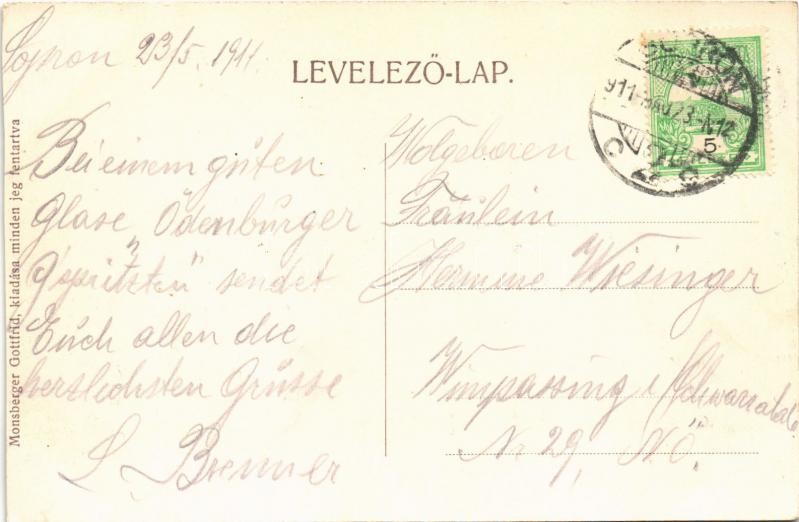 Sopron 23/5. 1911.
LEVELEZŐ-LAP.
Bei einem guten
Glase Ödenburger
"G'spritzten" sendet
Euch allen die
herzlichsten Grüsse
S. Bremer
Wolgeboren
Fräulein
Hermine Wiesinger
Wimpassing i/Schwarzatale
Nr 29, N.Ö.
Monsberger Gottfrid, kiadása minden jog fentartva
SOPRON
911 MÁJ 23
5